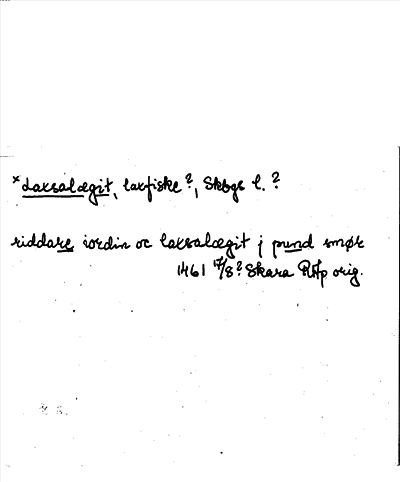 *Laxsalægit, laxfiske?, Skbgs l.?
riddare iordin oc laxsalægit j pund smør
1461 17/8? Skara RAp orig.